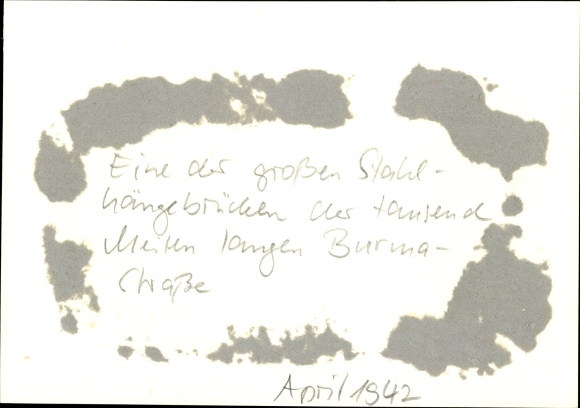 Eine der großen Stahl-
hängebrücken der tausend
Meilen langen Burma-
Straße
April 1942